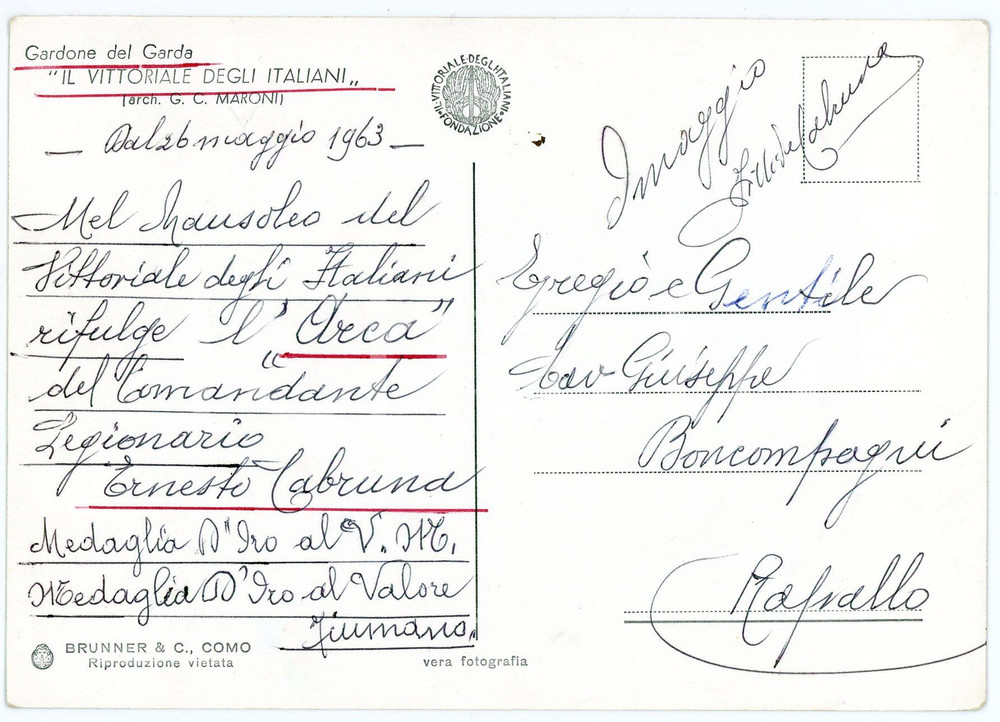 Gardone del Garda
"IL VITTORIALE DEGLI ITALIANI„
(arch. G. C. MARONI)
— Dal 26 maggio 1963 —
Nel Mausoleo del
Vittoriale degli Italiani
rifulge l' "Arca"
del Comandante
Legionario
Ernesto Cabruna
Medaglia D'Oro al V. M.
Medaglia D'Oro al Valore
Fiumano„
BRUNNER & C., COMO
Riproduzione vietata
vera fotografia
IL VITTORIALE DEGLI ITALIANI
FONDAZIONE
Omaggio
Cabruna
Egregio e Gentile
Cav Giuseppe
Boncompagni
Rapallo